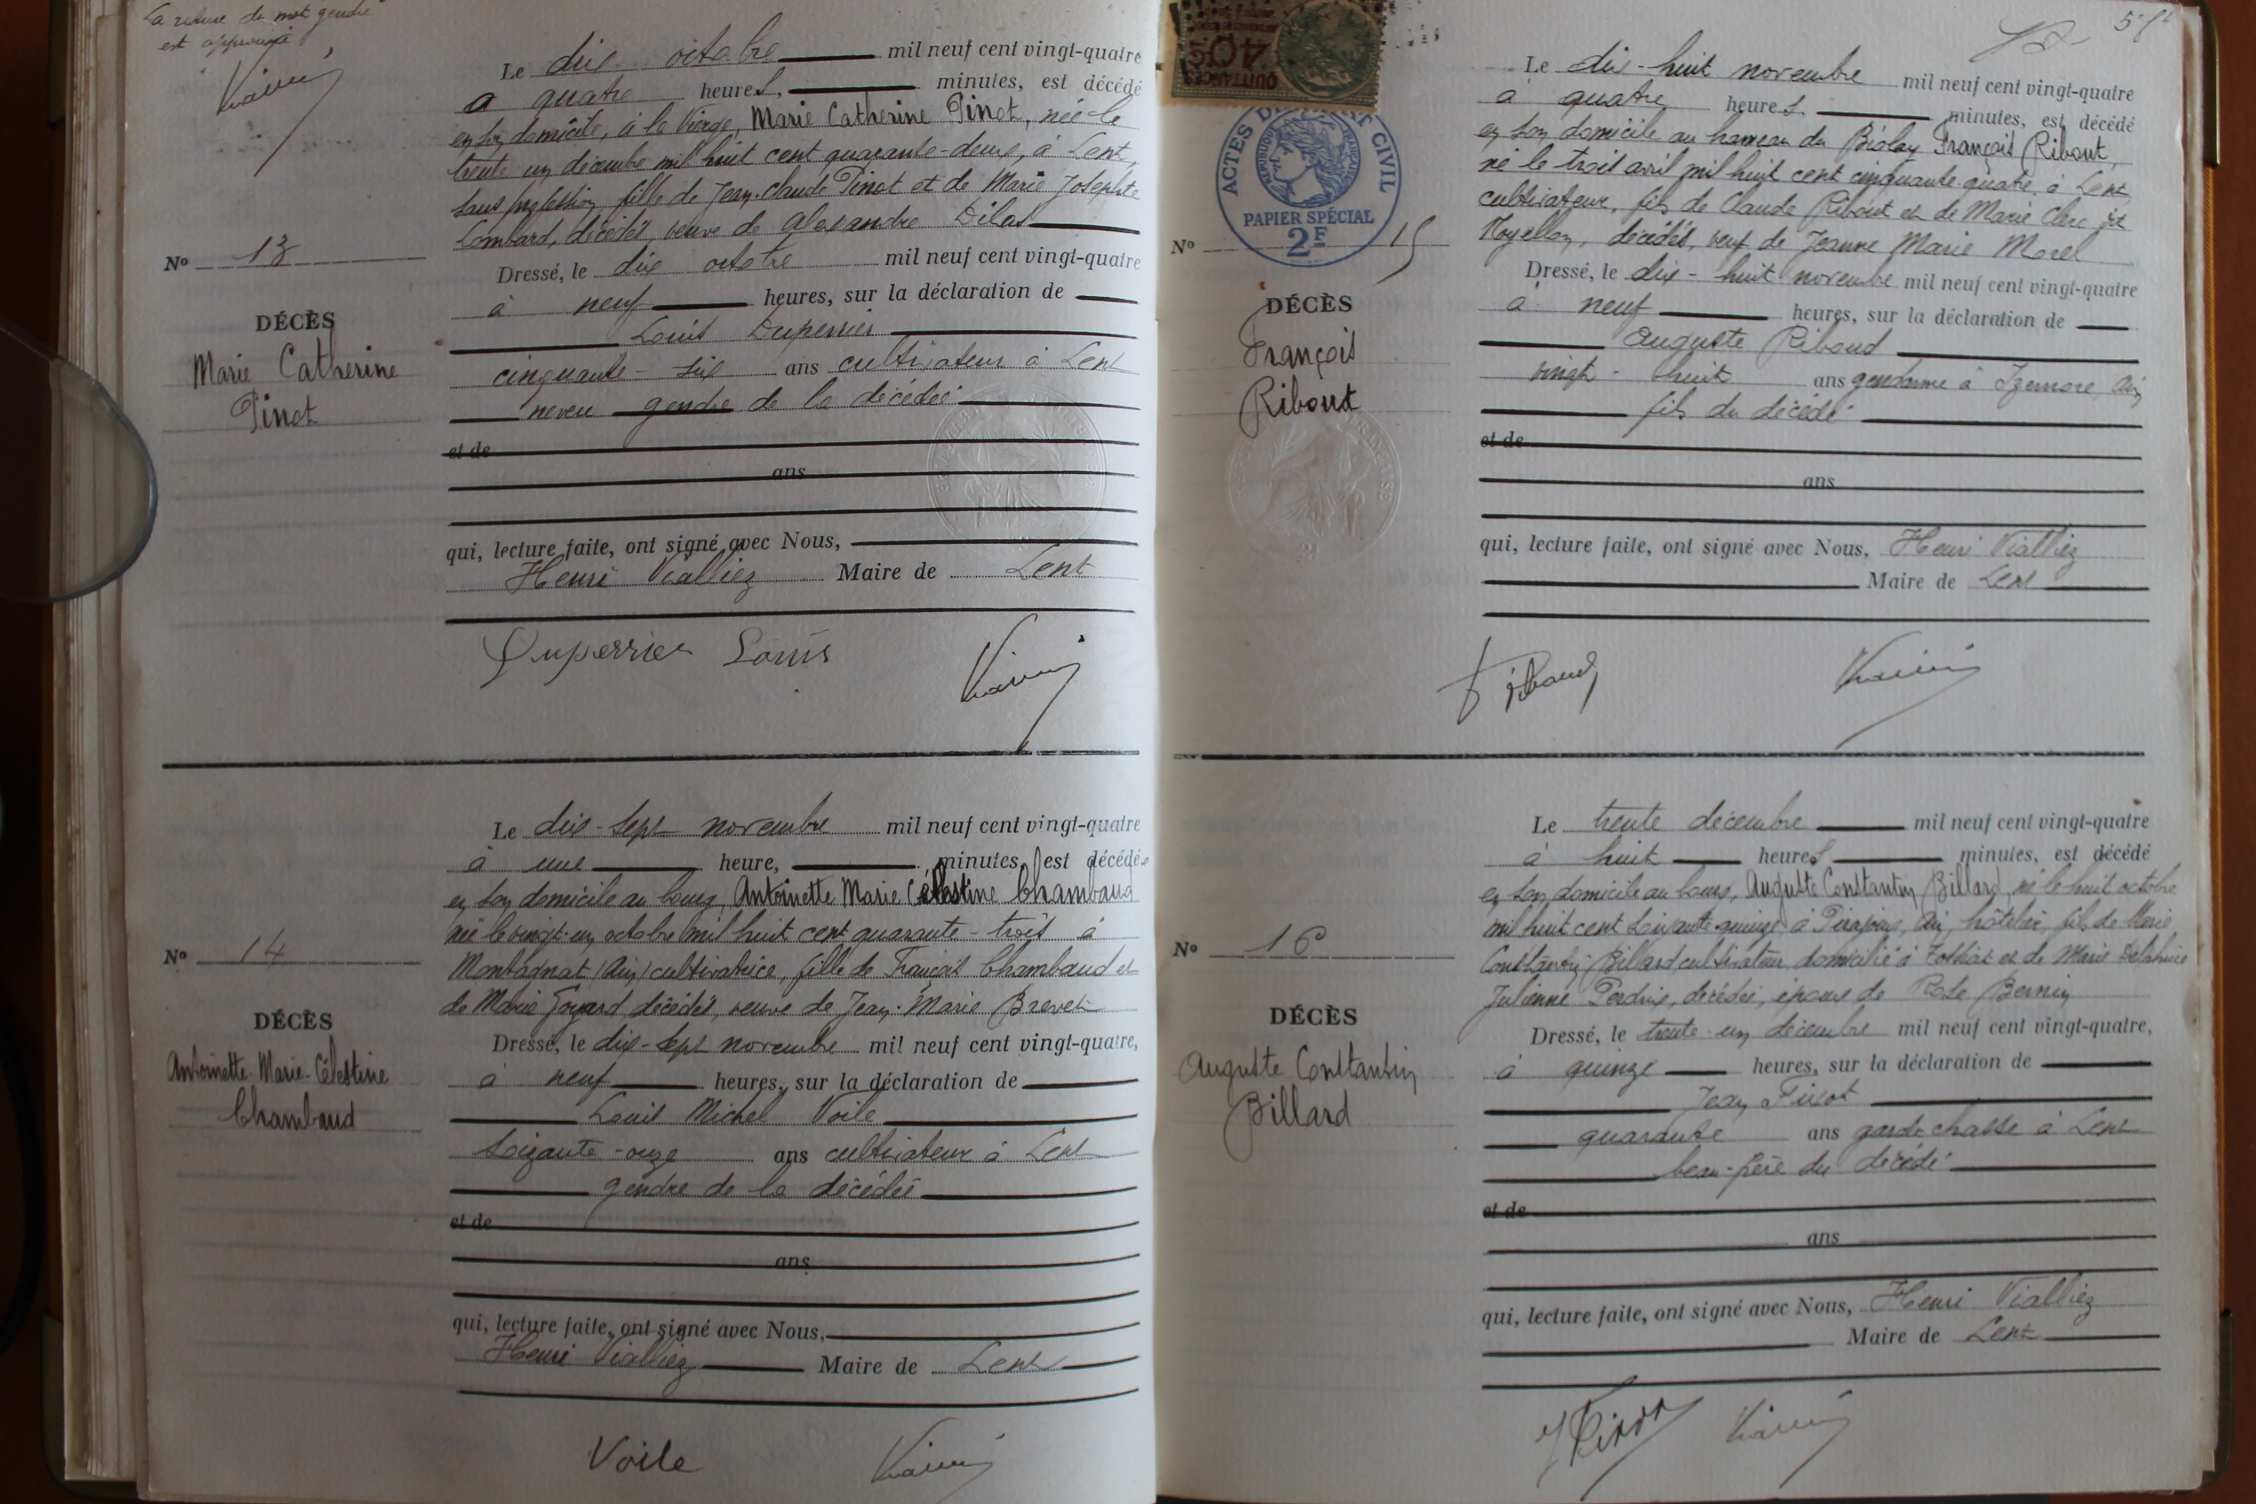 La rature du mot gendre
est approuvé
Le dix octobre mil neuf cent vingt-quatre
a quatre heures, minutes, est décédé
en son domicile, à la Vierge, Marie Catherine Pinot, née le
trente un décembre mil huit cent quarante-deux, à Lent,
sans profession, fille de Jean Claude Pinot et de Marie Josephte
Lombard, décédés, veuve de Alexandre Dilas
Nº 13
Dressé, le dix octobre mil neuf cent vingt-quatre
à neuf heures, sur la déclaration de
DÉCÈS
Marie Catherine
Pinot
Louis Duperrier
cinquante-six ans cultivateur à Lent
neveu gendre de la décédée
et de
ans
qui, lecture faite, ont signé avec Nous,
Henri Vialliez Maire de Lent
Duperrier Louis
Le dix-sept novembre mil neuf cent vingt-quatre
à une heure, minutes, est décédée
en son domicile au bourg, Antoinette Marie Célestine Chambaud
née le vingt-un octobre mil huit cent quarante-trois à
Nº 14
Montagnat (Ain) cultivatrice, fille de François Chambaud et
de Marie Goyard décédés, veuve de Jean-Marie Brevet
DÉCÈS
Antoinette Marie-Célestine
Chambaud
Dressé, le dix-sept novembre mil neuf cent vingt-quatre,
à neuf heures, sur la déclaration de
Louis Michel Voile
soixante-onze ans cultivateur à Lent
gendre de la décédée
et de
ans
qui, lecture faite, ont signé avec Nous,
Henri Vialliez Maire de Lent
Voile
QUITTANCES
40c
ACTES DE L'ÉTAT CIVIL
PAPIER SPÉCIAL
2F
Le dix-huit novembre mil neuf cent vingt-quatre
à quatre heures minutes, est décédé
en son domicile au hameau du Biolay François Ribout,
né le trois avril mil huit cent cinquante quatre à Lent
cultivateur, fils de Claude Ribout et de Marie Clerc dit
Noyellon, décédés, veuf de Jeanne Marie Morel
Nº 15
Dressé, le dix-huit novembre mil neuf cent vingt-quatre
à neuf heures, sur la déclaration de
DÉCÈS
François
Ribout
Auguste Riboud
vingt-huit ans gendarme à Izernore, Ain
fils du décédé
et de
ans
qui, lecture faite, ont signé avec Nous, Henri Vialliez
Maire de Lent
Le trente décembre mil neuf cent vingt-quatre
à huit heures minutes, est décédé
en son domicile au bourg, Auguste Constantin Billard, né le huit octobre
mil huit cent soixante-quinze à Pirajoux, Ain, hôtelier, fils de Marie
Constantin Billard cultivateur domicilié à Fossiat et de Marie
Julienne Perdrix, décédée, époux de Rose Bernin
Nº 16
DÉCÈS
Auguste Constantin
Billard
Dressé, le trente-un décembre mil neuf cent vingt-quatre,
à quinze heures, sur la déclaration de
Jean Pirot
quarante ans garde chasse à Lent
beau-frère du décédé
et de
ans
qui, lecture faite, ont signé avec Nous, Henri Vialliez
Maire de Lent